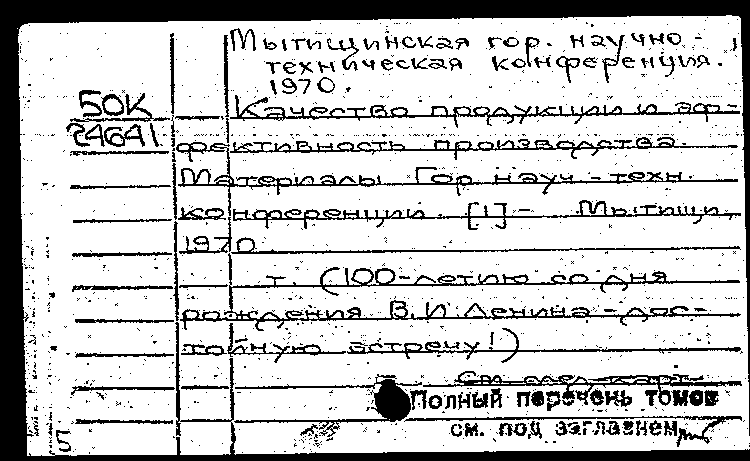 Мытищинская гор. научно-
техническая конференция.
1970.
50К
24641
Качество продукции и эф-
фективность производства.
Материалы Гор. науч.-техн.
конференции. [1]- Мытищи,
1970
т. (100-летию со дня
рождения В.И. Ленина - дос-
тойную встречу!)
См. след. карт.
Полный перечень томов
см. под заглавием
5